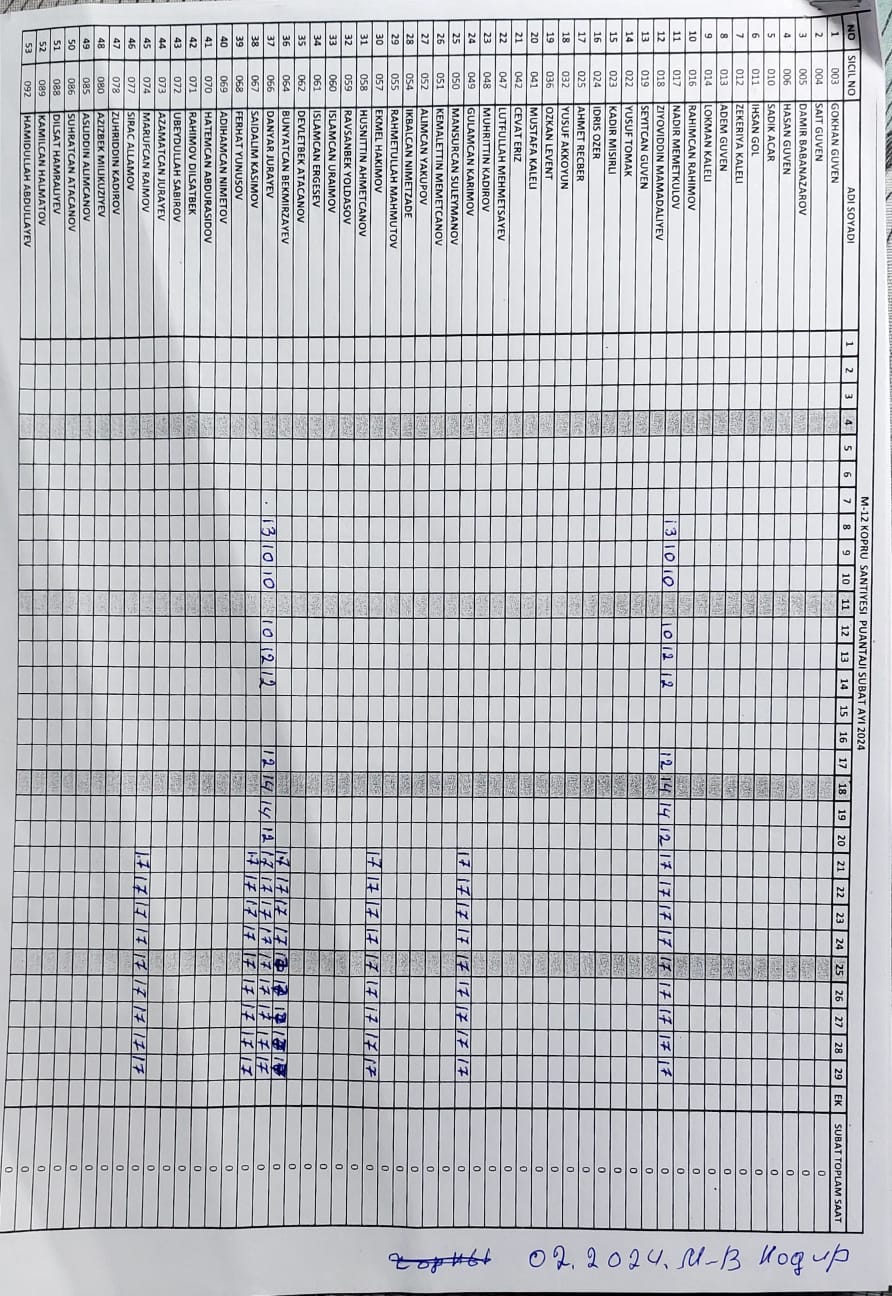 M-12 KOPRU SANTIYESI PUANTAJI SUBAT AYI 2024
NO SICIL NO ADI SOYADI 1 2 3 4 5 6 7 8 9 10 11 12 13 14 15 16 17 18 19 20 21 22 23 24 25 26 27 28 29 EK SUBAT TOPLAM SAAT
1 003 GOKHAN GUVEN 0
2 004 SAIT GUVEN 0
3 005 DAMIR BABANAZAROV 0
4 006 HASAN GUVEN 0
5 010 SADIK ACAR 0
6 011 IHSAN GOL 0
7 012 ZEKERIYA KALELI 0
8 013 ADEM GUVEN 0
9 014 LOKMAN KALELI 0
10 016 RAHIMCAN RAHIMOV 0
11 017 NADIR MEMETKULOV 13 10 10 10 12 12 12 14 14 12 17 17 17 17 17 17 17 17 17 0
12 018 ZIYOVIDDIN MAMADALIYEV 0
13 019 SEYITCAN GUVEN 0
14 022 YUSUF TOMAK 0
15 023 KADIR MISIRLI 0
16 024 IDRIS OZER 0
17 025 AHMET RECBER 0
18 032 YUSUF AKKOYUN 0
19 036 OZKAN LEVENT 0
20 041 MUSTAFA KALELI 0
21 042 CEVAT ERIZ 0
22 047 LUTFULLAH MEHMETSAYEV 0
23 048 MUHRITTIN KADIROV 0
24 049 GULAMCAN KARIMOV 17 17 17 17 17 17 17 17 17 0
25 050 MANSURCAN SULEYMANOV 0
26 051 KEMALETTIN MEMETCANOV 0
27 052 ALIMCAN YAKUPOV 0
28 054 IKBALCAN NIMETZADE 0
29 055 RAHMETULLAH MAHMUTOV 0
30 057 EKMEL HAKIMOV 17 17 17 17 17 17 17 17 17 0
31 058 HUSNITTIN AHMETCANOV 0
32 059 RAVSANBEK YOLDASOV 0
33 060 ISLAMCAN URAIMOV 0
34 061 ISLAMCAN ERGESEV 0
35 062 DEVLETBEK ATACANOV 0
36 064 BUNYATCAN BEKMIRZAYEV 17 17 17 17 17 17 17 17 17 0
37 066 DANYAR JURAYEV 13 10 10 10 12 12 12 14 14 12 17 17 17 17 17 17 17 17 17 0
38 067 SAIDALIM KASIMOV 17 17 17 17 17 17 17 17 17 0
39 068 FERHAT YUNUSOV 0
40 069 ADIHAMCAN NIMETOV 0
41 070 HATEMCAN ABDURASIDOV 0
42 071 RAHIMOV DILSATBEK 0
43 072 UBEYDULLAH SABIROV 0
44 073 AZAMATCAN JURAYEV 0
45 074 MARUFCAN RAIMOV 17 17 17 17 17 17 17 17 17 0
46 077 SIRAC ALLAMOV 0
47 078 ZUHRIDDIN KADIROV 0
48 080 AZIZBEK MILIKUZIYEV 0
49 085 ASLIDDIN ALIMCANOV 0
50 086 SUHRATCAN ATACANOV 0
51 088 DILSAT HAMRALIYEV 0
52 089 KAMILCAN HALMATOV 0
53 092 HAMIDULLAH ABDULLAYEV 0
02.2024. М-В Нодир